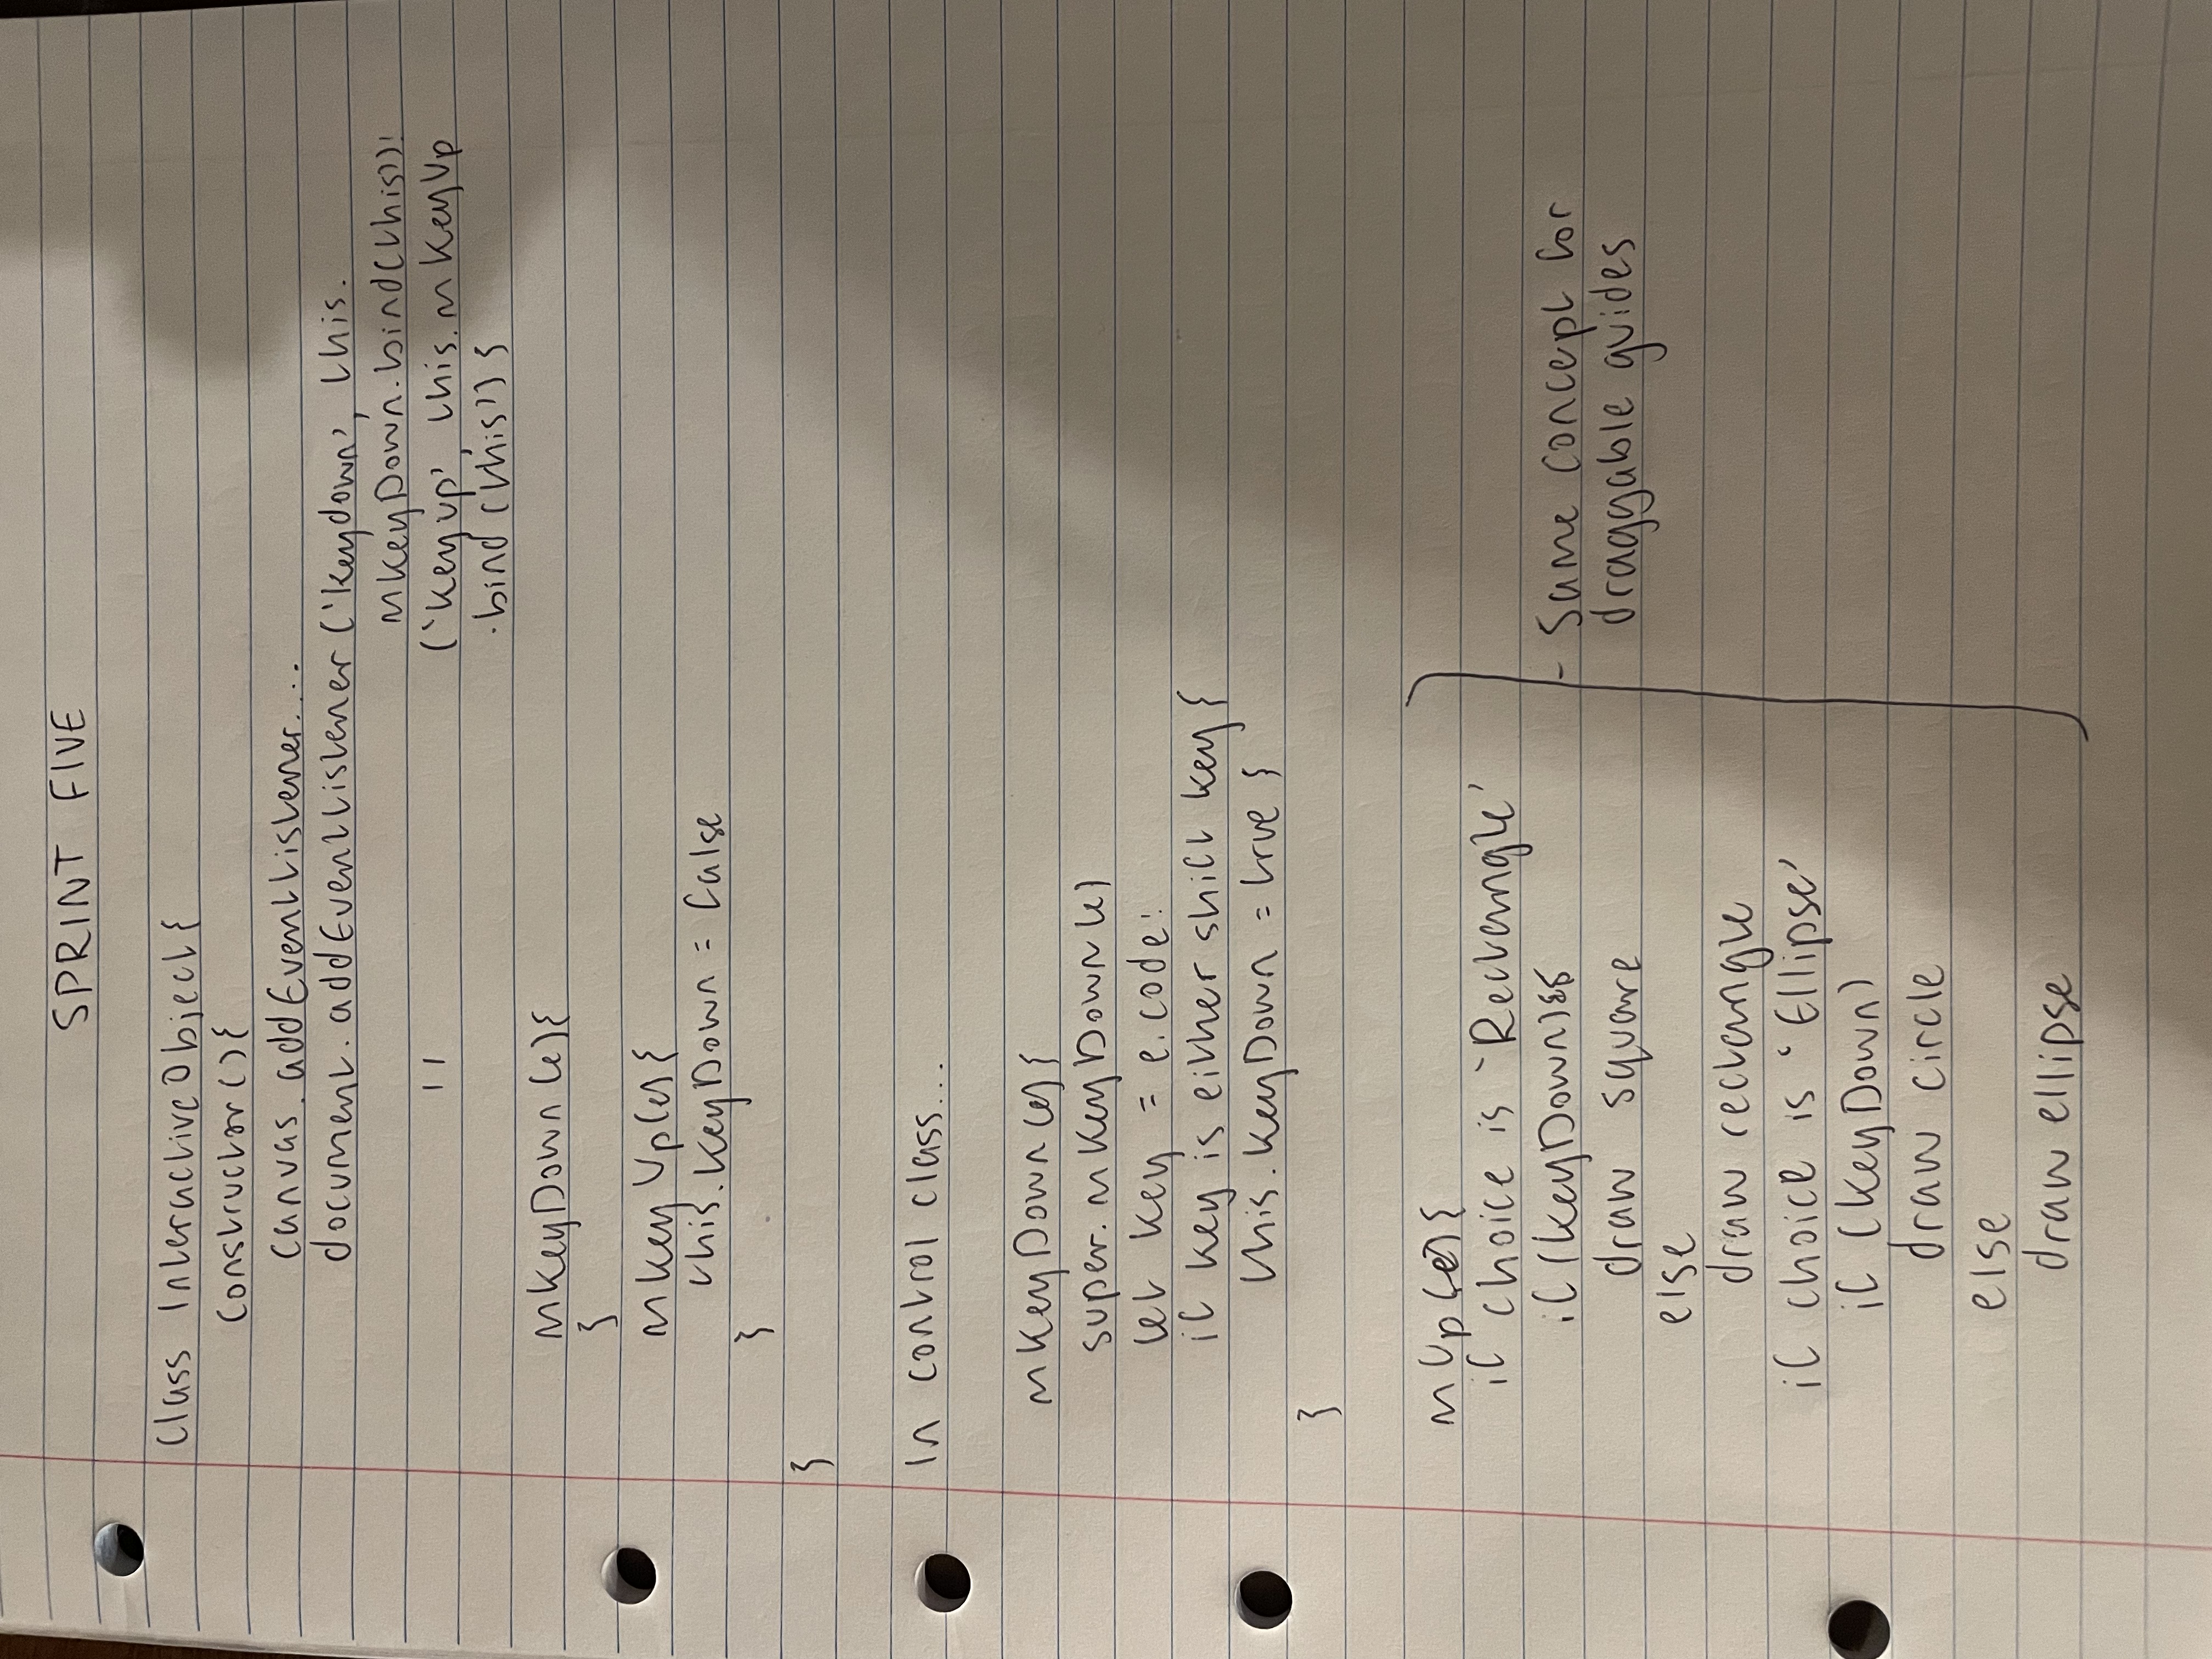 SPRINT FIVE
Class InteractiveObject{
Constructor(){
canvas.addEventListener....
document.addEventListener('keydown', this.
mKeyDown.bind(this));
" ('keyup', this.mKeyUp
.bind(this))}
mKeyDown(e){
}
mKeyUp(e){
this.keyDown = false
}
}
In control class...
mKeyDown(e){
super.mKeyDown(e)
let key = e.code;
if key is either shift key{
this.keyDown = true }
}
mUp(e){
if choice is 'Rectangle'
if(keyDown){
draw square
else
draw rectangle
if choice is 'Ellipse'
if (keyDown)
draw circle
else
draw ellipse
- Same concept for
draggable guides